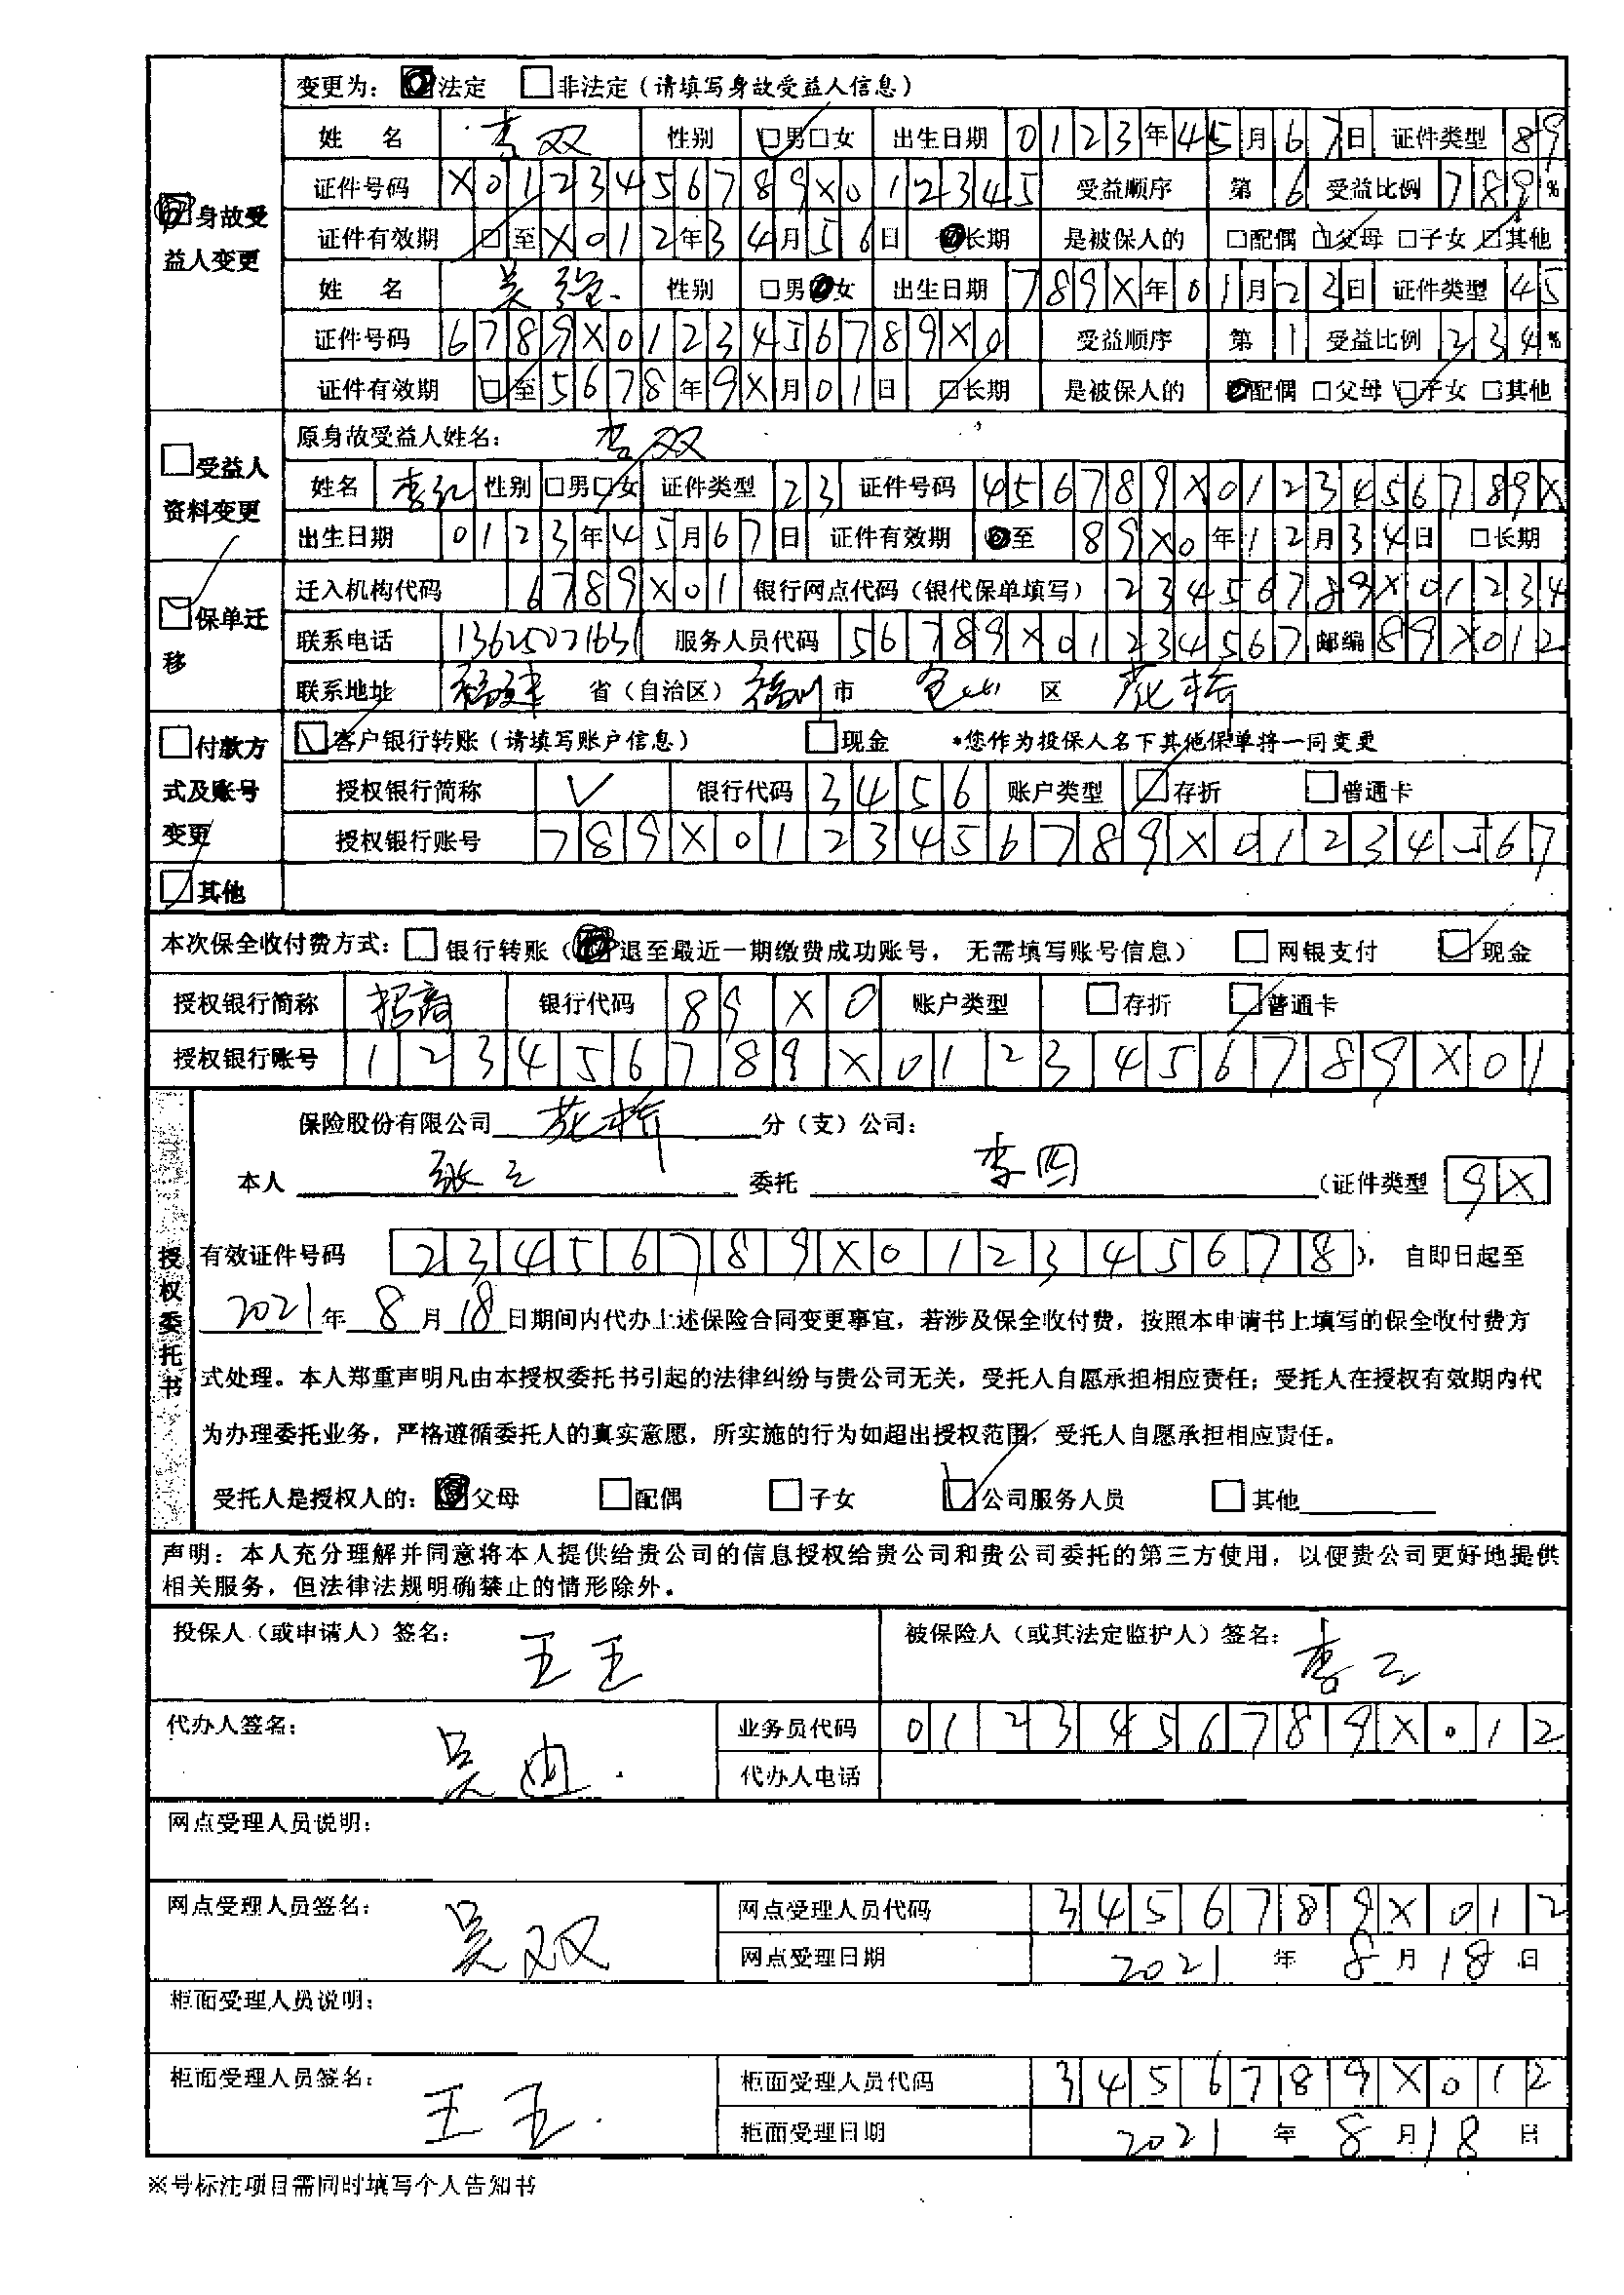 变更为： 法定 非法定（请填写身故受益人信息）
姓 名 李双 性别 男 女 出生日期 0123年45月67日 证件类型 89
证件号码 X0123456789X012345 受益顺序 第6 受益比例 789%
身故受益人变更
证件有效期 至X012年34月56日 长期 是被保人的 配偶 父母 子女 其他
姓 名 吴 性别 男 女 出生日期 789X年01月23日 证件类型 45
证件号码 6789X0123456789X0 受益顺序 第1 受益比例 234%
证件有效期 至5678年9X月01日 长期 是被保人的 配偶 父母 子女 其他
原身故受益人姓名： 李双
受益人资料变更
姓名 李红 性别 男 女 证件类型 23 证件号码 456789X0123456789X
出生日期 0123年45月67日 证件有效期 至 89X0年12月34日 长期
迁入机构代码 6789X01 银行网点代码（银代保单填写） 23456789X01234
保单迁移
联系电话 13625071631 服务人员代码 56789X01234567 邮编 89X012
联系地址 福建 省（自治区） 福州 市 仓山 区 花桥
付款方式及账号变更
客户银行转账（请填写账户信息） 现金 *您作为投保人名下其他保单将一同变更
授权银行简称 ✓ 银行代码 3456 账户类型 存折 普通卡
授权银行账号 789X0123456789X01234567
其他
本次保全收付费方式： 银行转账（ 退至最近一期缴费成功账号， 无需填写账号信息） 网银支付 现金
授权银行简称 招商 银行代码 89X0 账户类型 存折 普通卡
授权银行账号 123456789X0123456789X01
授权委托书
保险股份有限公司 花桥 分（支）公司：
本人 张三 委托 李四 （证件类型 9X
有效证件号码 23456789X012345678 ）， 自即日起至
2021年 8月18日期间内代办上述保险合同变更事宜，若涉及保全收付费，按照本申请书上填写的保全收付费方
式处理。本人郑重声明凡由本授权委托书引起的法律纠纷与贵公司无关，受托人自愿承担相应责任；受托人在授权有效期内代
为办理委托业务，严格遵循委托人的真实意愿，所实施的行为如超出授权范围，受托人自愿承担相应责任。
受托人是授权人的： 父母 配偶 子女 公司服务人员 其他
声明：本人充分理解并同意将本人提供给贵公司的信息授权给贵公司和贵公司委托的第三方使用，以便贵公司更好地提供
相关服务，但法律法规明确禁止的情形除外。
投保人（或申请人）签名： 王五 被保险人（或其法定监护人）签名： 李三
代办人签名： 吴迪 业务员代码 0123456789X012
代办人电话
网点受理人员说明：
网点受理人员签名： 吴双 网点受理人员代码 3456789X012
网点受理日期 2021 年 8 月 18 日
柜面受理人员说明：
柜面受理人员签名： 王五 柜面受理人员代码 3456789X012
柜面受理日期 2021 年 8 月 18 日
※号标注项目需同时填写个人告知书